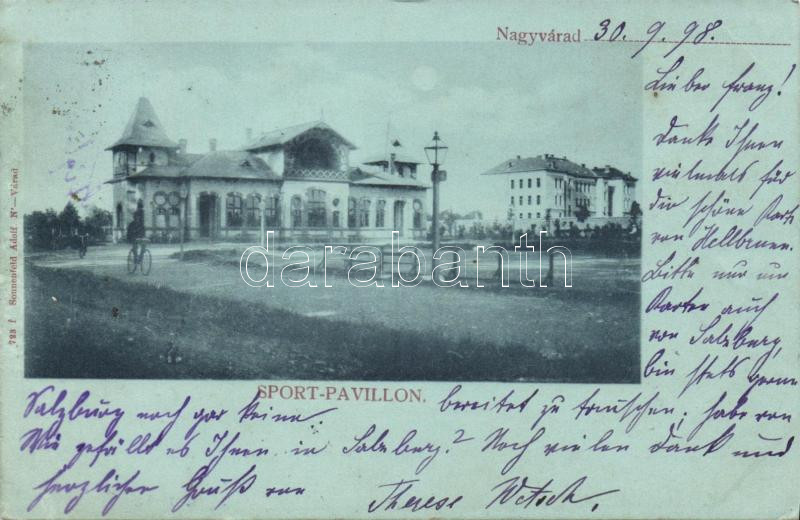 Nagyvárad 30. 9. 98.
Lieber Franz!
Danke Ihnen
vielmals für
die schöne Karte
von Hellbrunn.
Bitte nur um
Karten auch
von Salzburg,
bin stets gerne
bereitet zu tauschen, habe von
Salzburg noch gar keine.
Wie gefällt es Ihnen in Salzburg? Noch vielen Dank und
herzlichen Gruß von
Therese
SPORT-PAVILLON.
723 f Sonnenfeld Adolf. N-Várad
darabanth